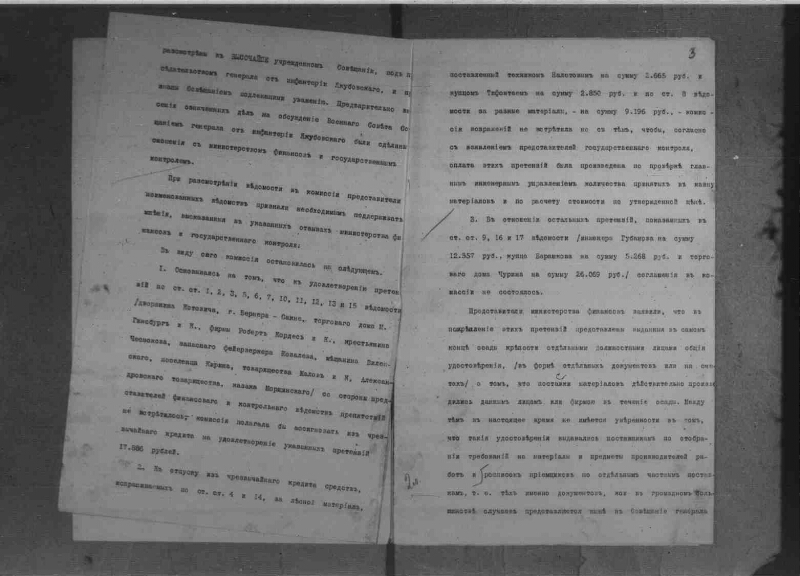 разсмотрѣны въ ВЫСОЧАЙШЕ учрежденномъ Совѣщаніи, подъ
сѣдательствомъ генерала отъ инфантеріи Якубовскаго, и
наны Совѣщаніемъ подлежащими уваженію. Предварительно
сенія означенныхъ дѣлъ на обсужденіе Военнаго Совѣта
щаніемъ генерала отъ инфантеріи Якубовскаго были сдѣланы
сношенія съ министерствомъ финансовъ и государственнымъ
контролемъ.
При разсмотрѣніи вѣдомости въ комиссіи представители
поименованныхъ вѣдомствъ признали необходимымъ поддерживать
мнѣнія, высказанныя въ указанныхъ отзывахъ министерства фи
нансовъ и государственнаго контроля.
Въ виду сего комиссія остановилась на слѣдующемъ.
1. Основываясь на томъ, что къ удовлетворенію претен
зій по ст. ст. 1, 2, 3, 5, 6, 7, 10, 11, 12, 13 и 15 вѣдомости
/дворянина г. Вернера - торговаго дома М.
Гинсбургъ и К., фирмы Робертъ Кордесъ и К., крестьянина
Чеснокова, запаснаго фейерверкера Ковалева, мѣщанина
скаго, поселенца товарищества и К.
дровскаго товарищества, казака со стороны пред
ставителей финансоваго и контрольнаго вѣдомствъ препятствій
не встрѣтилось, комиссія полагала бы ассигновать изъ чрез
вычайнаго кредита на удовлетвореніе указанныхъ претензій
17.886 рублей.
2. На отпускъ изъ чрезвычайнаго кредита средствъ,
испрашиваемыхъ по ст. ст. 4 и 14, за лѣсной матеріалъ,
3
поставленный техникомъ на сумму 2.665 руб. и
купцомъ Тифонтаемъ на сумму 2.850 руб. и по ст. 8 вѣдо-
мости за разные матеріалы, - на сумму 9.196 руб., - комис-
сія возраженій не встрѣтила но съ тѣмъ, чтобы, согласно
съ желаніемъ представителей государственнаго контроля,
оплата этихъ претензій была произведена по провѣркѣ глав-
нымъ инженернымъ управленіемъ количества принятыхъ въ казну
матеріаловъ и по расчету стоимости по утвержденной цѣнѣ.
3. Въ отношеніи остальныхъ претензій, показанныхъ въ
ст. ст. 9, 16 и 17 вѣдомости /инженера Губанова на сумму
12.557 руб., купца Баранкова на сумму 5.268 руб. и торго-
ваго дома Чурина на сумму 26.069 руб./ соглашенія въ ко-
миссіи не состоялось.
Представители министерства финансовъ заявили, что въ
подкрѣпленіе этихъ претензій представлены выданныя въ самомъ
концѣ осады крѣпости отдѣльными должностными лицами общія
удостовѣренія, /въ формѣ отдѣльныхъ документовъ или на сче-
тахъ/ о томъ, что поставки матеріаловъ дѣйствительно произво-
дились даннымъ лицомъ или фирмою въ теченіе осады. Между
тѣмъ въ настоящее время не имѣется увѣренности въ томъ,
что такія удостовѣренія выдавались поставщикамъ по отобра-
ніи требованій на матеріалы и предметы производителей ра-
ботъ и росписокъ пріемщиковъ по отдѣльнымъ частямъ постав-
камъ, т. е. тѣхъ именно документовъ, кои въ громадномъ боль-
шинствѣ случаевъ представляются нынѣ въ Совѣщаніе генерала